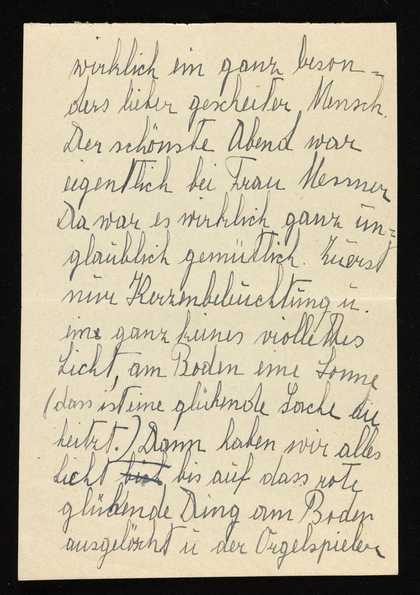 wirklich ein ganz beson=
ders lieber gescheiter Mensch.
Der schönste Abend war
eigentlich bei Frau Messner
Da war es wirklich ganz un=
glaublich gemütlich. Zuerst
nur Kerzenbeleuchtung u.
eine ganz kleines viollettes
Licht, am Boden eine Sonne
(dass ist eine glühende Sache die
heitzt.) Dann haben wir alles
Licht bis auf dass rote
glühende Ding am Boden
ausgelöscht u der Orgelspieler